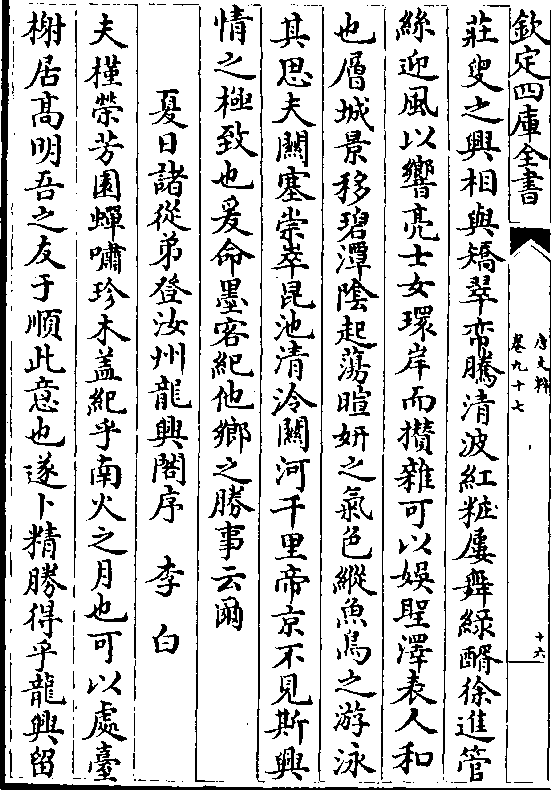 欽定四庫全書
唐文粹
卷九十七
十六
莊叟之興相與矯翠帟騰清波紅粧屢舞緑醑徐進管
絲迎風以響亮士女環岸而攅雜可以娛聖澤表人和
也層城景移碧潭陰起蕩暄妍之氣色縱魚鳥之游泳
其思夫闗塞崇崒昆池清泠闗河千里帝京不見斯興
情之極致也爰命墨客紀他鄉之勝事云爾
夏日諸從弟登汝州龍興閣序　李白
夫槿榮芳園蟬嘯珍木蓋紀乎南火之月也可以處臺
榭居高明吾之友于順此意也遂卜精勝得乎龍興留